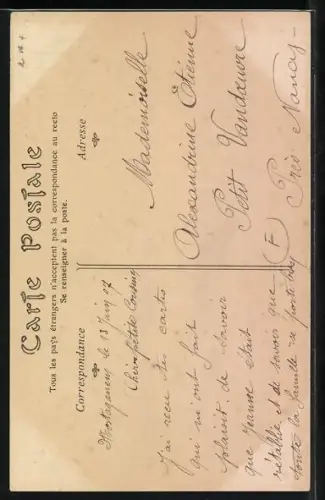 Carte Postale
Tous les pays étrangers n'acceptent pas la correspondance au recto
Se renseigner à la poste.
Correspondance
Adresse
Mostaganem le 13 Juin 07
Chère petite Cousine
J'ai reçu tes cartes
qui m'ont fait
plaisir. de savoir
que Jeanne était
rétablie et de savoir que
toute la famille se porte bien
Mademoiselle
Alexandrine Étienne
Petit Vandoeuvre
Près Nancy